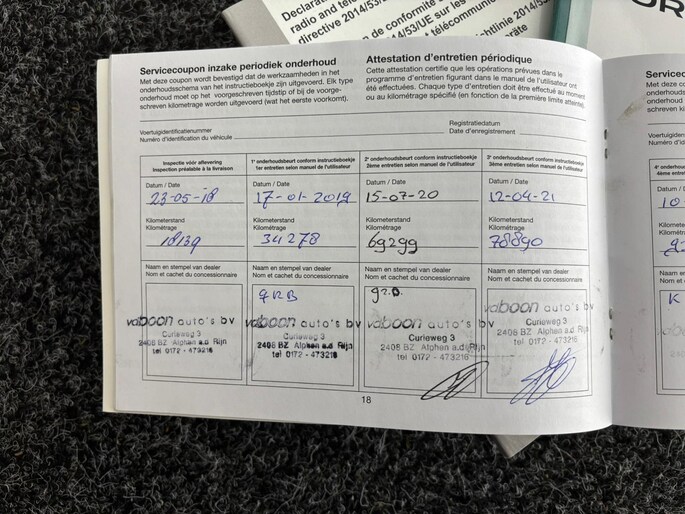 Declara
radio and tele
directive 2014/53/
n de conformité s
2014/53/UE sur les
télécommunic
htlinie 2014/53
eräte
OR
Servicecoupon inzake periodiek onderhoud
Met deze coupon wordt bevestigd dat de werkzaamheden in het
onderhoudsschema van het instructieboekje zijn uitgevoerd. Elk type
onderhoud moet op het voorgeschreven tijdstip of bij de voorge-
schreven kilometrage worden uitgevoerd (wat het eerste voorkomt).
Attestation d'entretien périodique
Cette attestation certifie que les opérations prévues dans le
programme d'entretien figurant dans le manuel de l'utilisateur ont
été effectuées. Chaque type d'entretien doit être effectué au moment
ou au kilométrage spécifié (en fonction de la première limite atteinte).
Voertuigidentificatienummer
Numéro d'identification du véhicule
Registratiedatum
Date d'enregistrement
Inspectie vóór aflevering
Inspection préalable à la livraison
Datum / Date
23-05-18
Kilometerstand
Kilométrage
18139
Naam en stempel van dealer
Nom et cachet du concessionnaire
vaboon auto's bv
Curieweg 3
2408 BZ Alphen a.d. Rijn
tel 0172 - 473216
1e onderhoudsbeurt conform instructieboekje
1er entretien selon manuel de l'utilisateur
Datum / Date
17-01-2019
Kilometerstand
Kilométrage
34278
Naam en stempel van dealer
Nom et cachet du concessionnaire
vaboon auto's bv
Curieweg 3
2408 BZ Alphen a.d. Rijn
tel 0172 - 473216
2e onderhoudsbeurt conform instructieboekje
2ème entretien selon manuel de l'utilisateur
Datum / Date
15-07-20
Kilometerstand
Kilométrage
69299
Naam en stempel van dealer
Nom et cachet du concessionnaire
gr.B.
vaboon auto's bv
Curieweg 3
2408 BZ Alphen a.d. Rijn
tel 0172 - 473216
3e onderhoudsbeurt conform instructieboekje
3ème entretien selon manuel de l'utilisateur
Datum / Date
12-04-21
Kilometerstand
Kilométrage
78890
Naam en stempel van dealer
Nom et cachet du concessionnaire
vaboon auto's bv
Curieweg 3
2408 BZ Alphen a.d. Rijn
tel 0172 - 473216
18
Serviceco
Met deze coup
onderhoudssch
onderhoud
schreven kil
Voertuigiden
Numéro d'id
4e onder
4ème entre
Datum / Dat
10
Kilometer
Kilométra
Naam en
Nom et c
K